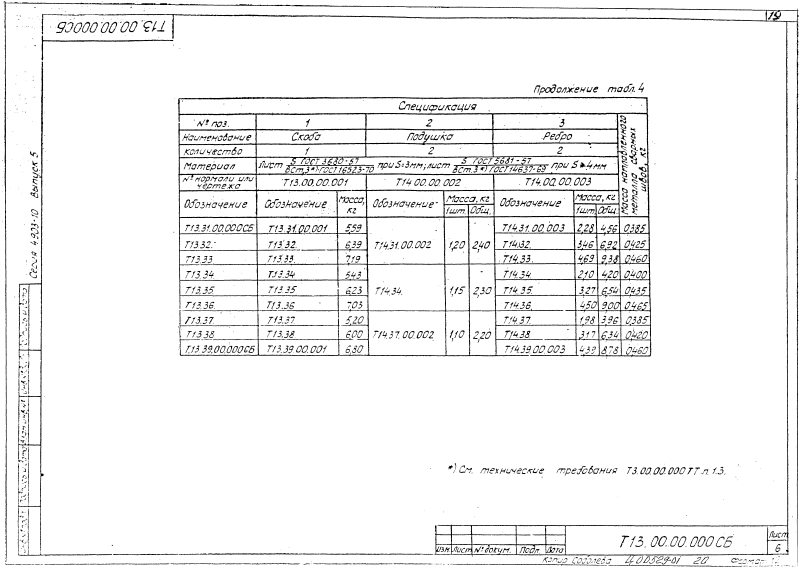 19
Т13.00.00.000СБ
Серия 4.903-10 Выпуск 5
Продолжение табл. 4
Спецификация
№ поз. 1 2 3
Наименование Скоба Подушка Ребро
Количество 1 2 2
Материал Лист S ГОСТ 3680-57 / ВСт.3*) ГОСТ 16523-70 при S=3мм; лист S ГОСТ 5681-57 / ВСт.3*) ГОСТ 14637-69 при S⩾4мм
№ нормали или чертежа Т13.00.00.001 Т14.00.00.002 Т14.00.00.003
Масса наплавленного металла сварных швов, кг
Обозначение Обозначение Масса, кг Обозначение Масса, кг Обозначение Масса, кг
1шт. Общ. 1шт. Общ.
Т13.31.00.000СБ Т13.31.00.001 5,59 Т14.31.00.003 2,28 4,56 0,385
Т13.32. Т13.32. 6,39 Т14.31.00.002 1,20 2,40 Т14.32. 3,46 6,92 0,425
Т13.33 Т13.33. 7,19 Т14.33. 4,69 9,38 0,460
Т13.34 Т13.34 5,43 Т14.34. 2,10 4,20 0,400
Т13.35 Т13.35 6,23 Т14.34. 1,15 2,30 Т14.35. 3,27 6,54 0,435
Т13.36. Т13.36 7,03 Т14.36. 4,50 9,00 0,465
Т13.37. Т13.37. 5,20 Т14.37. 1,98 3,96 0,385
Т13.38 Т13.38 6,00 Т14.37.00.002 1,10 2,20 Т14.38 3,17 6,34 0,420
Т13.39.00.000СБ Т13.39.00.001 6,80 Т14.39.00.003 4,39 8,78 0,460
*) См. технические требования Т3.00.00.000ТТ п.1.3.
Изм. Лист № докум. Подп. Дата
Т13.00.00.000СБ
Лист
6
Копир Соболева 400529-01 20 Формат 12